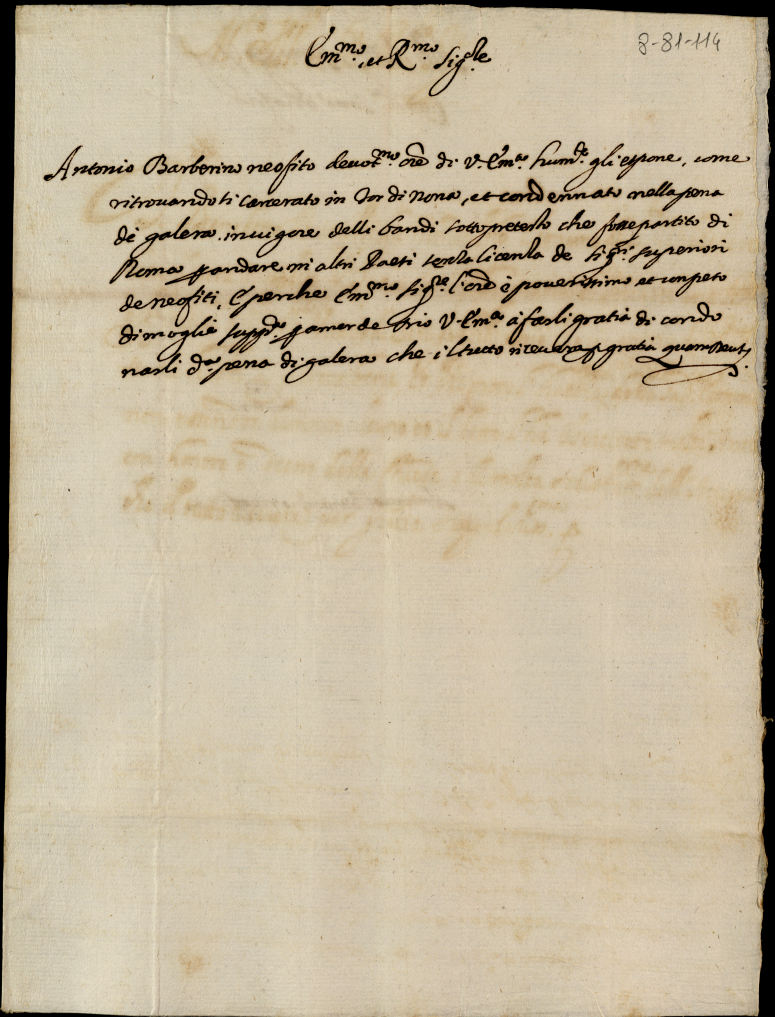 8-81-114
Em.mo et R.mo Sig.re
Antonio Barberino neofito devot.mo ore di V. Em.a hum.te gli espone, come
ritrovandosi carcerato in Tor di nona, et condennato nella pena
di galera in vigore delli bandi sotto pretesto che fosse partito di
Roma p andare in altri Paesi senza licenza de Sig.ri superiori
de neofiti, E perche Em.mo Sig.re l'ore è poverissimo et con peso
di moglie supp.ca p amor de Dio V. Em.a à farli gratia di condo
narli d.a pena di galera che il tutto ricevera p gratia quam Deus